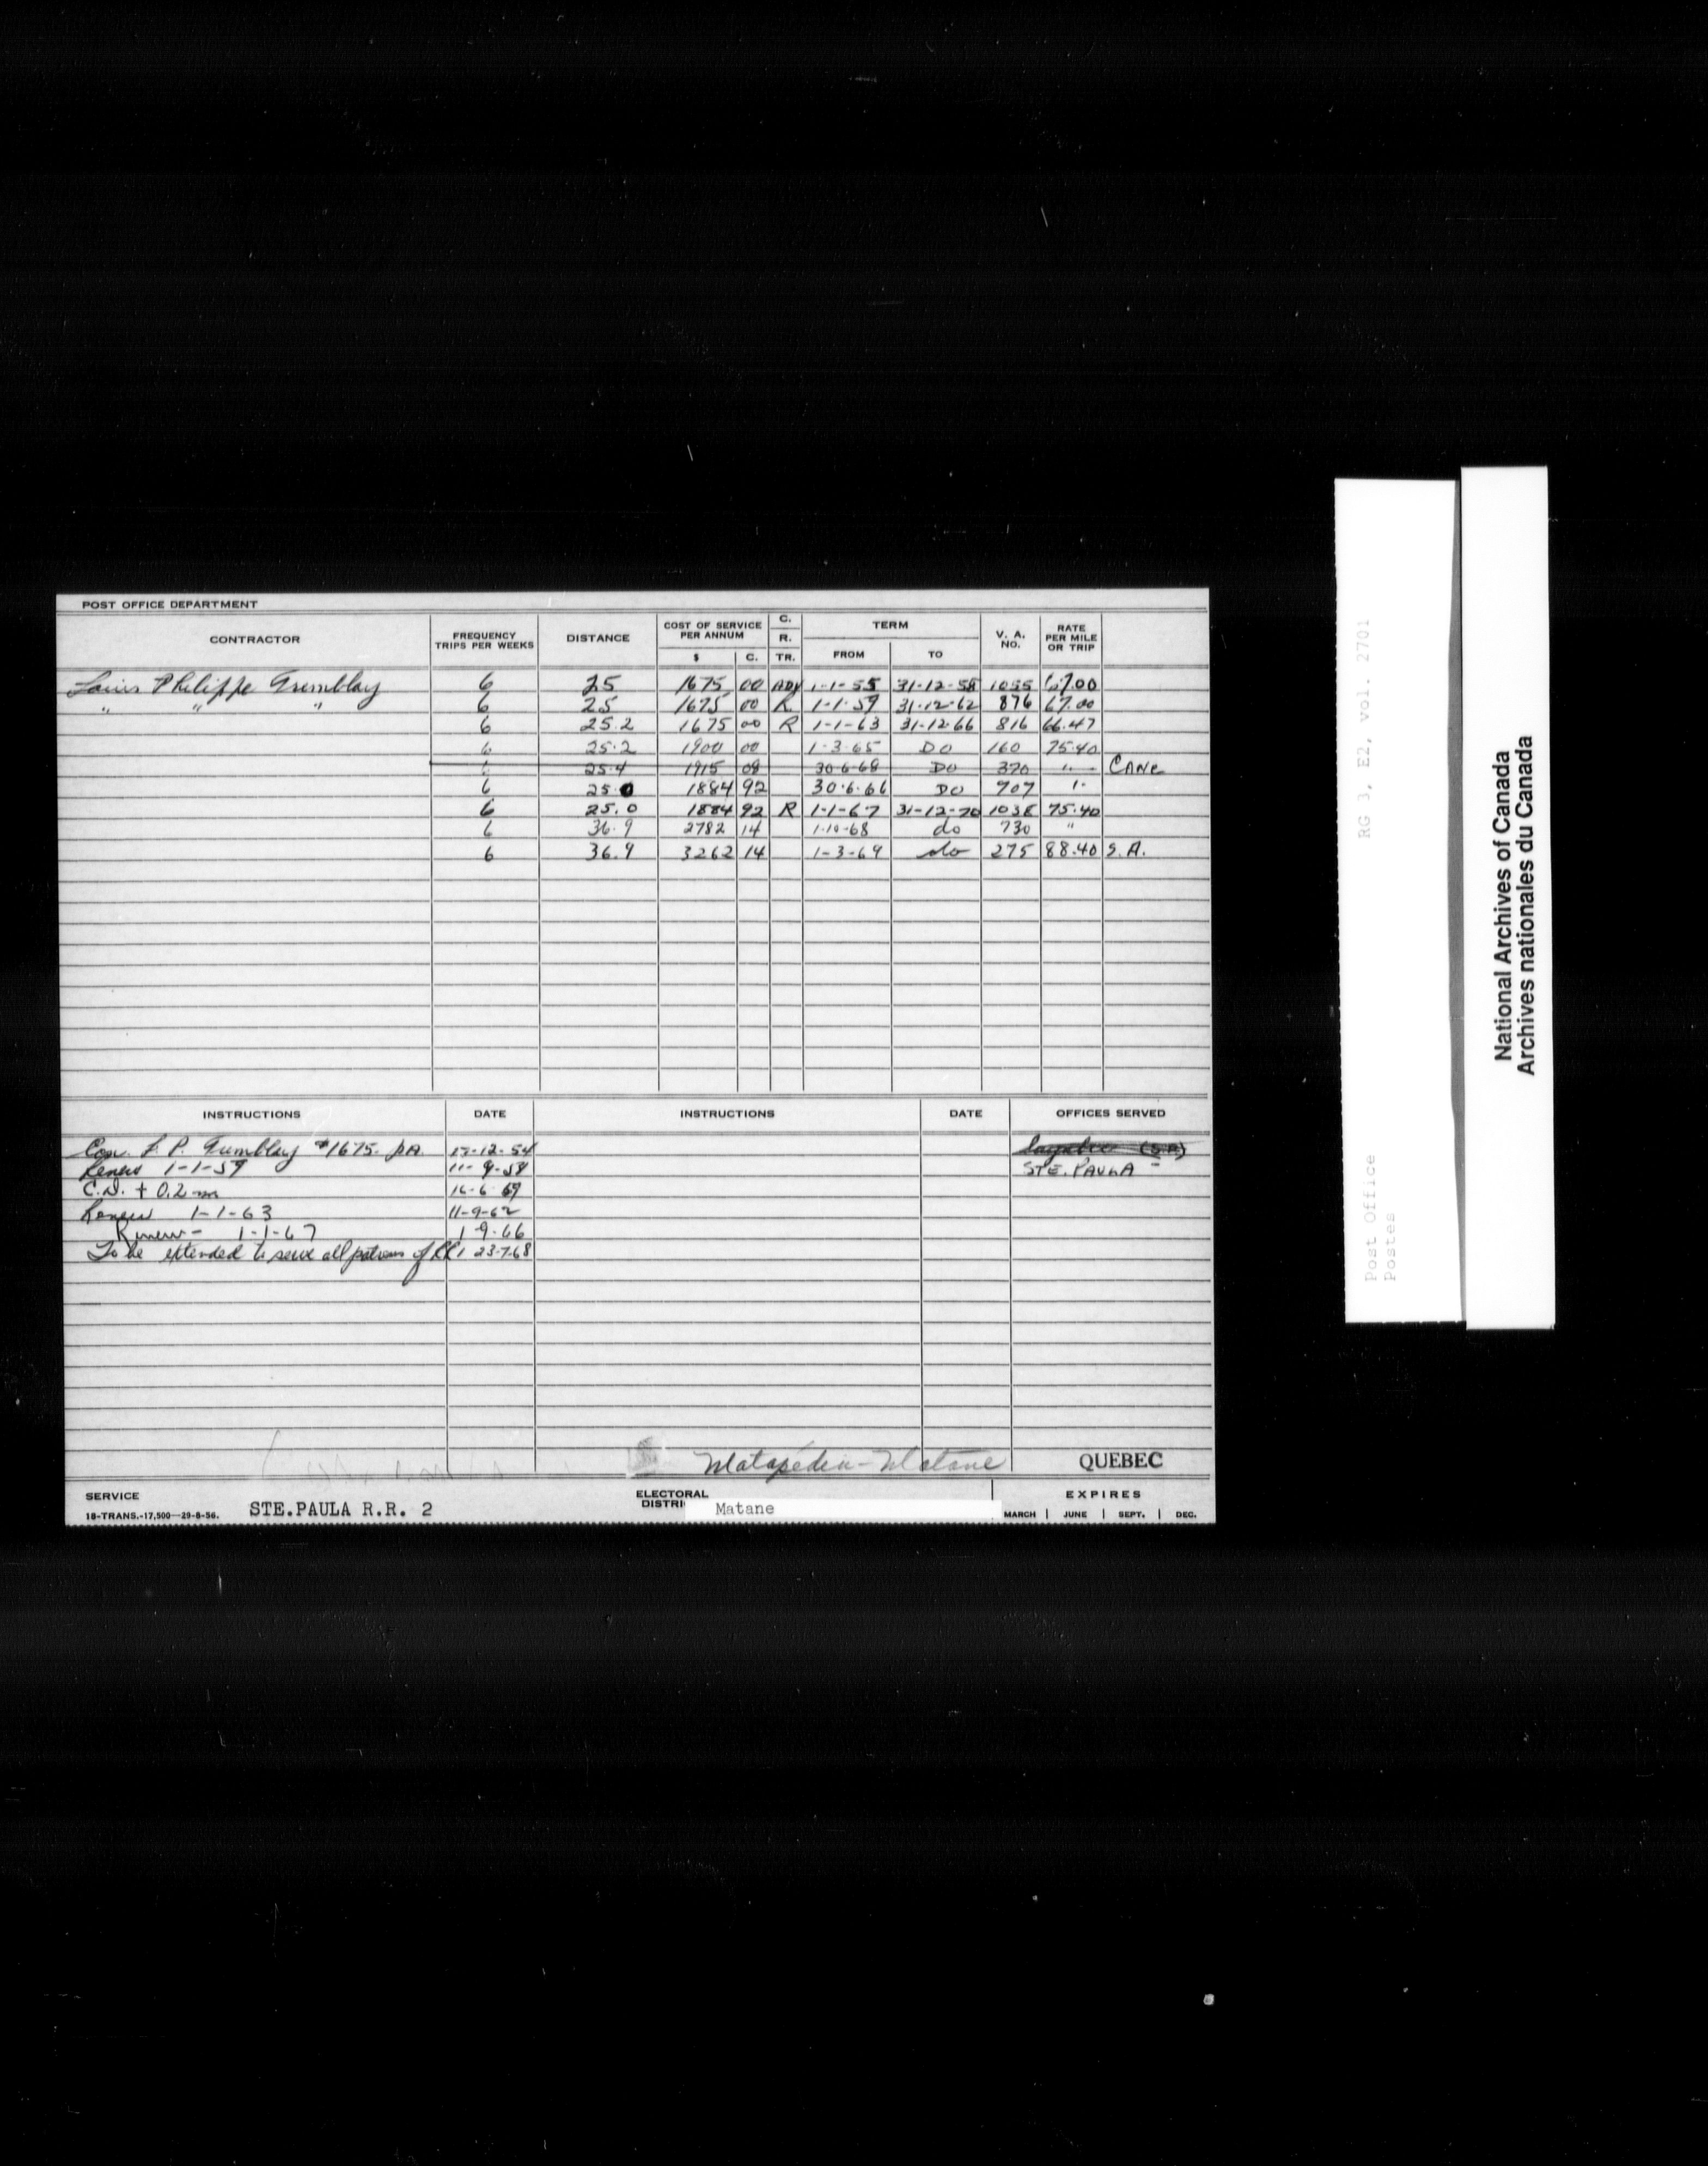 POST OFFICE DEPARTMENT
CONTRACTOR FREQUENCY TRIPS PER WEEKS DISTANCE COST OF SERVICE PER ANNUM $ C. C. R. TR. TERM FROM TO V. A. NO. RATE PER MILE OR TRIP
Louis Philippe Tremblay 6 25 1675 00 ADV 1-1-55 31-12-58 1055 67.00
" " " 6 25 1675 00 R 1-1-59 31-12-62 876 67.00
6 25.2 1675 00 R 1-1-63 31-12-66 816 66.47
6 25.2 1900 00 1-3-65 DO 160 75.40
6 25.4 1915 08 30-6-68 DO 370 " CANC
6 25.0 1884 92 30-6-66 DO 907 "
6 25.0 1884 92 R 1-1-67 31-12-70 1038 75.40
6 36.9 2782 14 1-10-68 do 730 "
6 36.9 3262 14 1-3-69 do 275 88.40 S.A.
INSTRUCTIONS DATE INSTRUCTIONS DATE OFFICES SERVED
Con. L. P. Tremblay $1675. p.a. 17-12-54
Renew 1-1-59 11-9-58 STE. PAULA
C.D. + 0.2 m 16-6-59
Renew 1-1-63 11-9-62
Renew - 1-1-67 1-9-66
To be extended to serve all patrons of RR1 23-7-68
Matapédia-Matane QUEBEC
SERVICE STE.PAULA R.R. 2 ELECTORAL DISTRI Matane EXPIRES
18-TRANS.-17,500—29-8-56. MARCH JUNE SEPT. DEC.
RG 3, E2, vol. 2701
Post Office
Postes
National Archives of Canada
Archives nationales du Canada